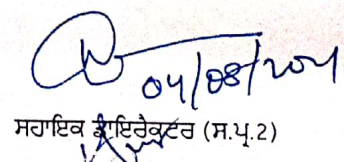 04/08/2021
ਸਹਾਇਕ ਡਾਇਰੈਕਟਰ (ਸ.ਪ੍ਰ.2)